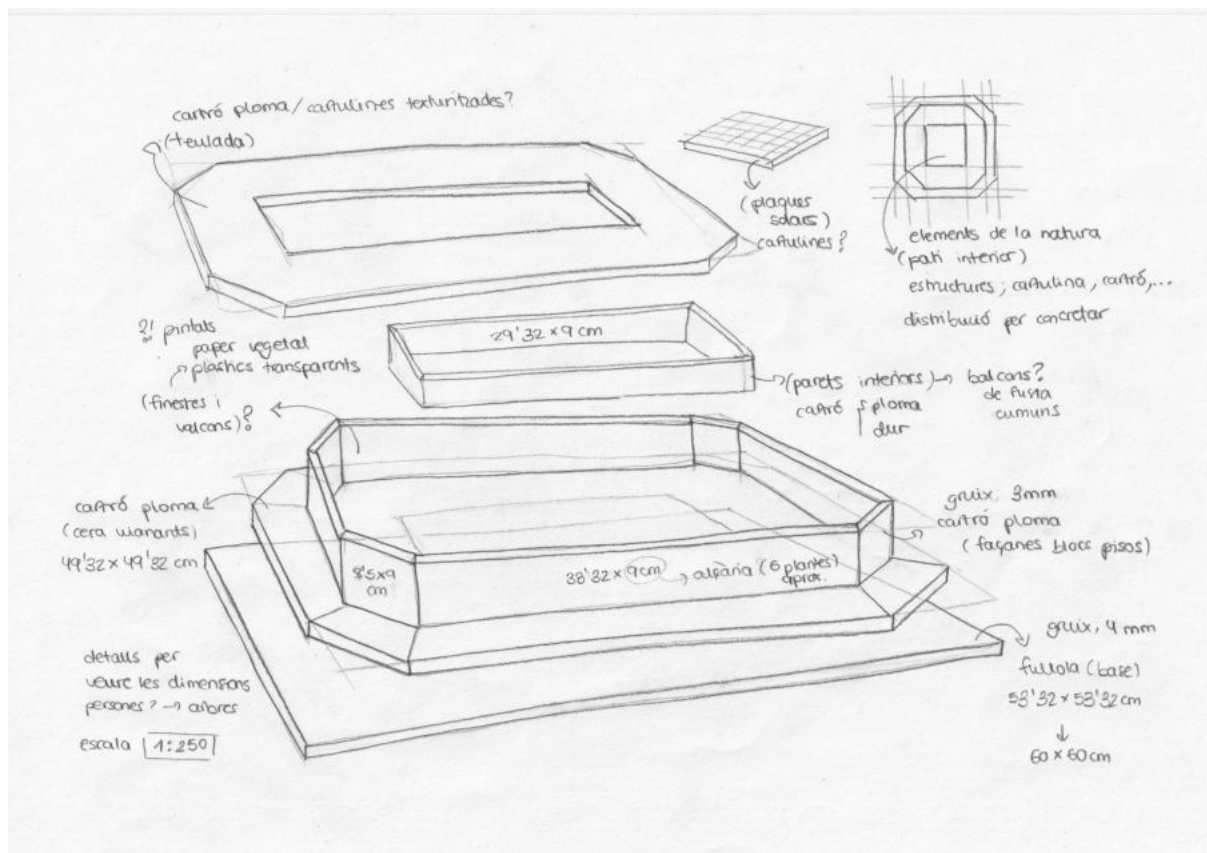 cartró ploma / cartulines texturitzades?
(teulada)
(plaques
solars)
cartulines?
elements de la natura
(pati interior)
estructures; cartulina, cartró,...
distribució per concretar
?! pintats
paper vegetal
plàstics transparents
(finestres i
valcons)?
29'32 x 9 cm
(parets interiors) → balcons?
de fusta
cumuns
cartró ploma
dur
cartró ploma
(cera vianants)
49'32 x 49'32 cm
8'5x9
cm
38'32 x 9cm → alçària (6 plantes)
aprox.
gruix, 3mm
cartró ploma
(façanes blocs pisos)
gruix, 4 mm
fullola (base)
53'32 x 53'32 cm
↓
60 x 60 cm
detalls per
veure les dimensions
persones? → arbres
escala 1:250